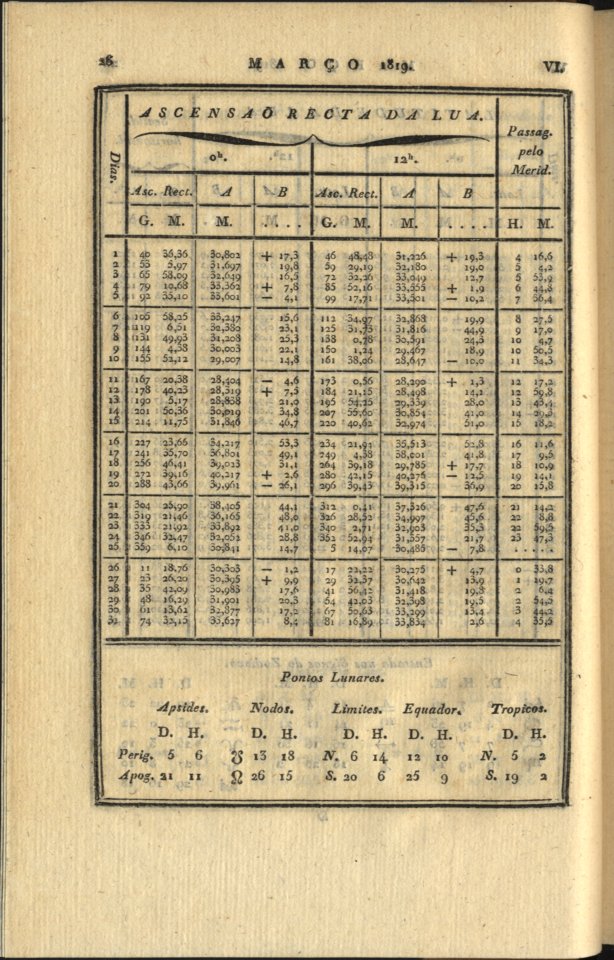 26 MARÇO 1819. VI.
ASCENSAÕ RECTA DA LUA.
Dias. 0ʰ. 12ʰ. Passag. pelo Merid.
Asc. Rect. A B Asc. Rect. A B
G. M. M. .... G. M. M. .... H. M.
1 40 36,36 30,802 + 17,3 46 48,48 31,226 + 19,3 4 16,6
2 53 5,97 31,697 19,8 59 29,19 32,180 19,0 5 4,2
3 65 58,09 32,649 16,5 72 32,26 33,049 12,7 5 53,9
4 79 10,68 33,362 + 7,8 85 52,16 33,555 + 1,9 6 44,8
5 92 35,10 33,601 — 4,1 99 17,71 33,501 — 10,2 7 36,4
6 106 58,25 33,247 15,6 112 34,97 32,868 19,9 8 27,5
7 119 6,51 32,380 23,1 125 31,73 31,816 44,9 9 17,0
8 131 49,93 31,208 25,3 138 0,78 30,591 24,3 10 4,7
9 144 4,38 30,003 22,1 150 1,24 29,467 18,9 10 50,5
10 155 52,12 29,007 14,8 161 38,06 28,647 — 10,0 11 34,3
11 167 20,38 28,404 — 4,6 173 0,56 28,290 + 1,3 12 17,2
12 178 40,23 28,319 + 7,5 184 21,15 28,498 14,1 12 59,8
13 190 5,17 28,838 21,0 195 54,25 29,339 28,0 13 43,4
14 201 50,36 30,019 34,8 207 55,60 30,854 41,0 14 29,3
15 214 11,75 31,846 46,7 220 40,62 32,974 51,0 15 18,2
16 227 23,66 34,217 53,3 234 21,94 35,513 52,8 16 11,6
17 241 35,70 36,801 49,1 249 4,38 38,001 41,8 17 9,5
18 256 46,41 39,023 31,1 264 39,18 29,785 + 17,7 18 10,9
19 272 39,16 40,217 + 2,6 280 42,15 40,276 — 12,5 19 14,1
20 288 43,66 39,961 — 26,1 296 39,43 39,315 36,9 20 15,8
21 304 25,90 38,405 44,1 312 0,41 37,326 47,6 21 14,2
22 319 21,46 36,165 48,0 326 28,52 34,997 45,6 22 8,8
23 333 21,92 33,892 41,0 340 2,71 32,903 35,3 22 59,5
24 346 32,47 32,052 28,8 352 52,94 31,357 21,7 23 47,3
25 359 6,10 30,841 14,7 5 14,07 30,485 — 7,8 .....
26 11 18,76 30,303 — 1,2 17 22,22 30,275 + 4,7 0 33,8
27 23 26,20 30,395 + 9,9 29 32,37 30,642 13,9 1 19,7
28 35 42,09 30,983 17,6 41 56,42 31,418 19,8 2 6,4
29 48 16,29 31,901 20,3 54 42,03 32,398 19,5 2 54,2
30 61 13,62 32,877 17,2 67 50,63 33,299 13,4 3 44,2
31 74 32,15 33,627 8,4 81 16,89 33,834 2,6 4 35,5
Pontos Lunares.
Apsides. Nodos. Limites. Equador. Tropicos.
D. H. D. H. D. H. D. H. D. H.
Perig. 5 6 ☋ 13 18 N. 6 14 12 10 N. 5 2
Apog. 21 11 ☊ 26 15 S. 20 6 25 9 S. 19 2